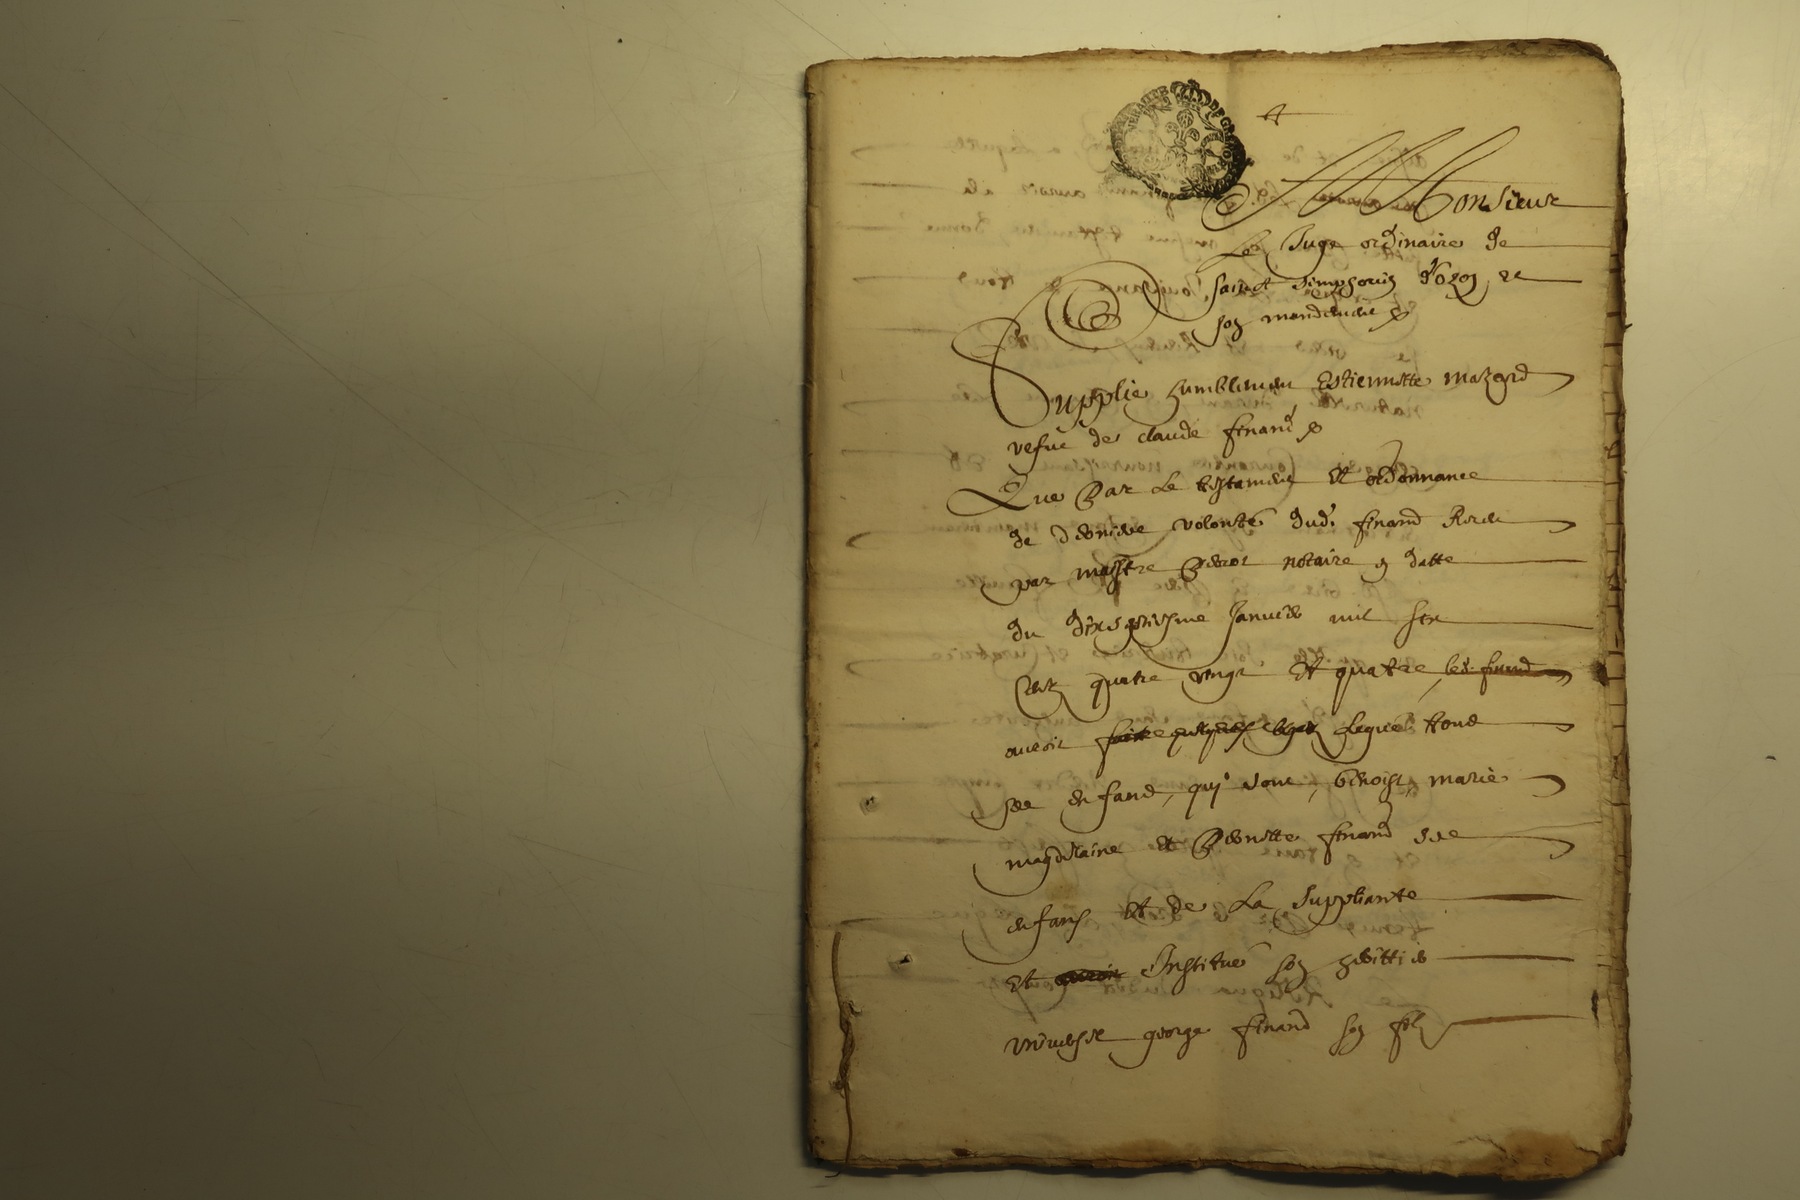 A Monsieur
Le Juge ordinaire de
sainct simphorin d'ozon et
son mandement
Supplie humblement Estiennette mazard
vefue de claude finand
Que Par Le testament Et ordonnance
de derniere volonté dud. finand Receu
par maistre notaire en datte
du dixseptiesme Janvier mil six
Cent quatre vingt Et quatre led. finand
auroit faict quelques legat Legué tant
enfand, qui sont, benoist, marie
magdelaine Et Pernette finand ses
enfans Et de La Suppliante
Et auroit Institué son herittier
universel george finand son filz